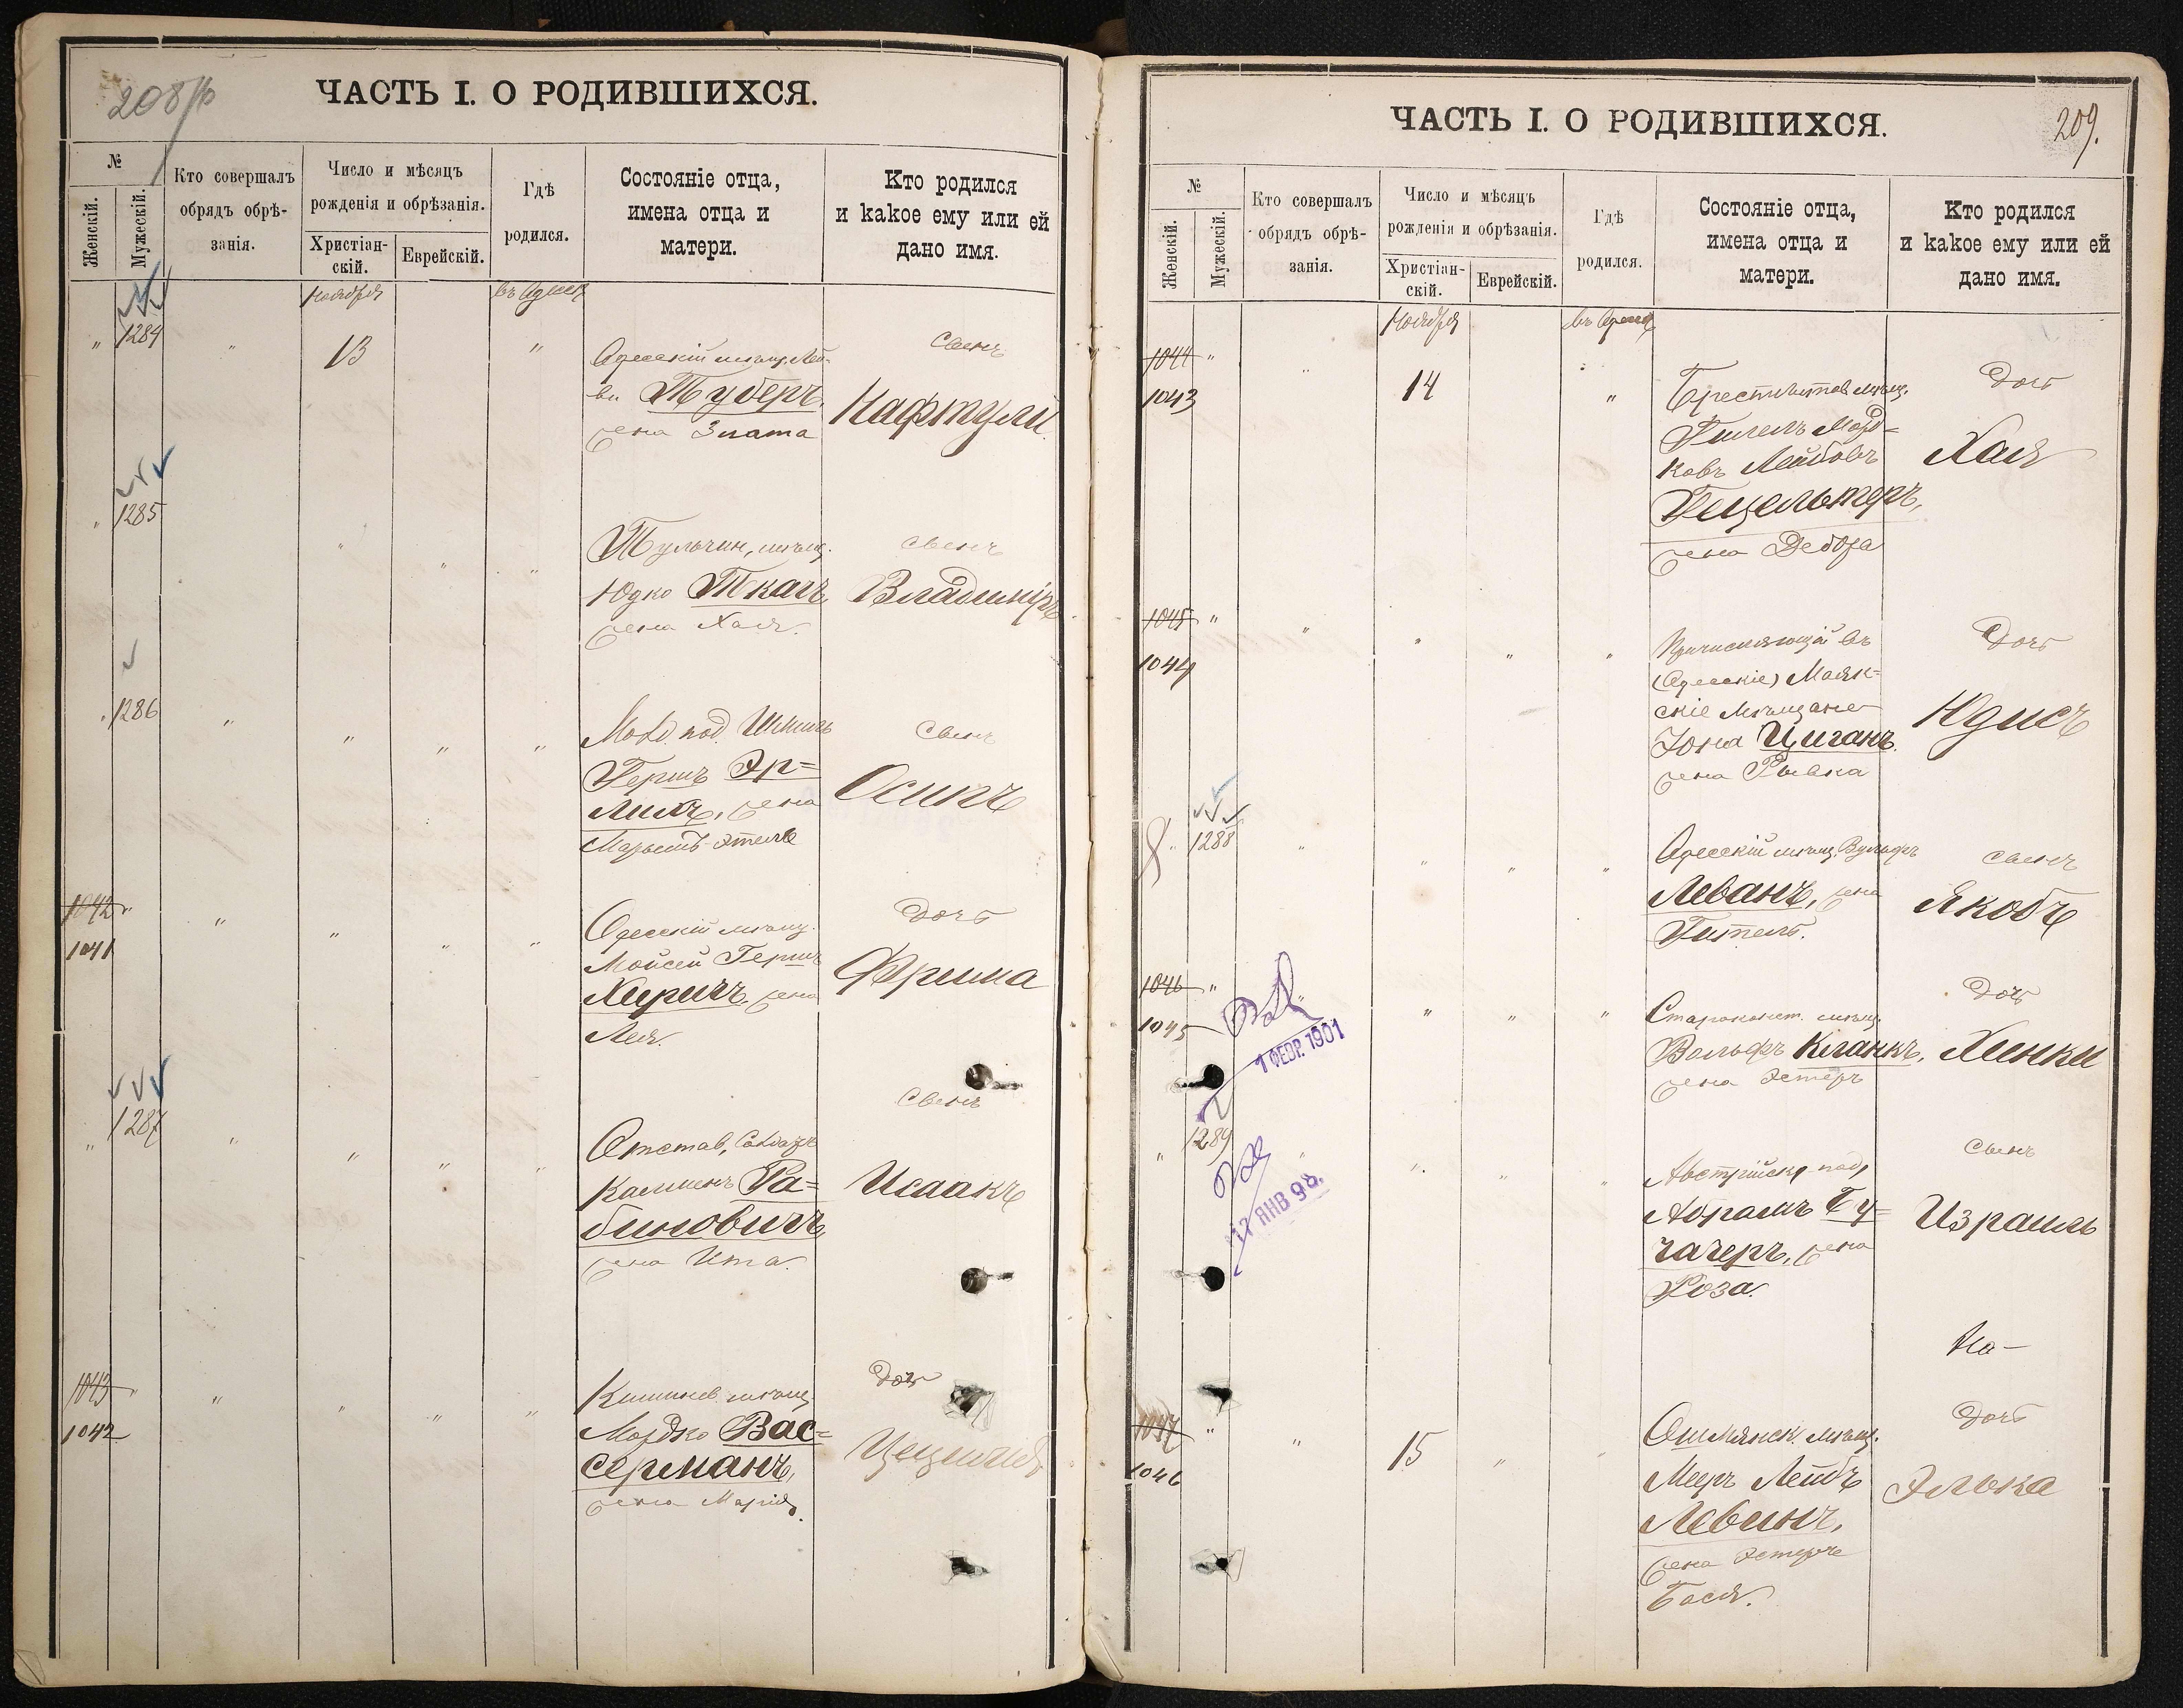 208/б
ЧАСТЬ I. О РОДИВШИХСЯ.
№
Женскій.
Мужескій.
Кто совершалъ
обрядъ обрѣ-
занія.
Число и мѣсяцъ
рожденія и обрѣзанія.
Христіан-
скій.
Еврейскій.
Гдѣ
родился.
Состояніе отца,
имена отца и
матери.
Кто родился
и какое ему или ей
дано имя.
Ноября
въ Одессѣ
" 1284 " 13 "
Одесскій мѣщ. Лей-
ви Туберъ,
жена Злата
Сынъ
Нафтули.
" 1285 " " "
Тульчин. мѣщ.
Юдко Ткачъ,
жена Хая.
Сынъ
Владиміръ
" 1286 " " " "
под.
Гершъ Эр-
лихъ, жена
Марьямъ-Этель
Сынъ
Осипъ
1042 " " " " "
1041
Одесскій мѣщ.
Мойсей Гершъ
жена
Лея.
Дочь
Фрима
" 1287 " " " "
Отстав. Солдатъ
Кальменъ Ра-
биновичъ,
жена Ита.
Сынъ
Исаакъ
1043 " " " " "
1042
Кишинев. мѣщ.
Мордко Вас-
серманъ,
жена Марія.
Дочь
Цецилія
209.
ЧАСТЬ I. О РОДИВШИХСЯ.
№
Женскій.
Мужескій.
Кто совершалъ
обрядъ обрѣ-
занія.
Число и мѣсяцъ
рожденія и обрѣзанія.
Христіан-
скій.
Еврейскій.
Гдѣ
родился.
Состояніе отца,
имена отца и
матери.
Кто родился
и какое ему или ей
дано имя.
Ноября
въ Одессѣ
1044 " " 14 "
1043
Брестлитов. мѣщ.
Гилель Морд-
ковъ Лейбовъ
Гецельтеръ,
жена Дебора
Дочь
Хая
1045 " " " " "
1044
Причисляющій въ
(Одесскіе) Маяк-
скіе Мѣщане
Іона Циганъ
жена Рывка
Дочь
Юдисъ
" 1288 " " " "
Одесскій мѣщ. Вульфъ
Леванъ, жена
Гитель.
Сынъ
Якобъ
1046 " " " " "
1045
1 ФЕВР. 1901
Староконст. мѣщ.
Вольфъ Кланкъ,
жена Эстеръ
Дочь
Хинки
" 1289 " " " "
17 ЯНВ 98.
Австрійск. под.
Абрамъ Бу-
чачеръ, жена
Роза.
Сынъ
Израиль
1047 " " 15 " "
1046
Ошмянск. мѣщ.
Меръ Лейбъ
Левинъ,
жена Эстеръ
Бася.
Дочь
Элька